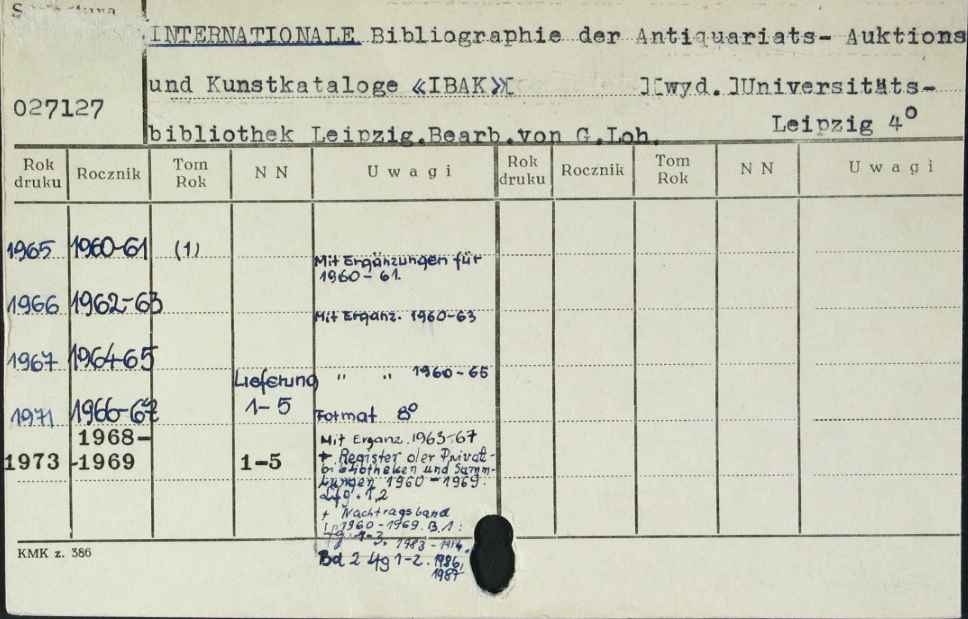 INTERNATIONALE Bibliographie der Antiquariats- Auktions
und Kunstkataloge «IBAK»[ ][wyd.]Universitäts-
027127
bibliothek Leipzig.Bearb.von G.Loh. Leipzig 4°
Rok druku Rocznik Tom Rok N N Uwagi Rok druku Rocznik Tom Rok N N Uwagi
1965 1960-61 (1) Mit Ergänzungen für
1960-61.
1966 1962-63 Mit Ergänz. 1960-63
1967 1964-65 " " 1960-65
Lieferung
1971 1966-67 1-5 Format 8°
1968- Mit Erganz. 1963-67
1973 -1969 1-5 + Register der Privat-
bibliotheken und Samm-
lungen 1960-1969.
Lfg. 1,2
+ Nachtragsband
1960-1969. B.1:
1-3. 1983-
Bd 2 Lfg 1-2. 1986,
1987
KMK z. 386